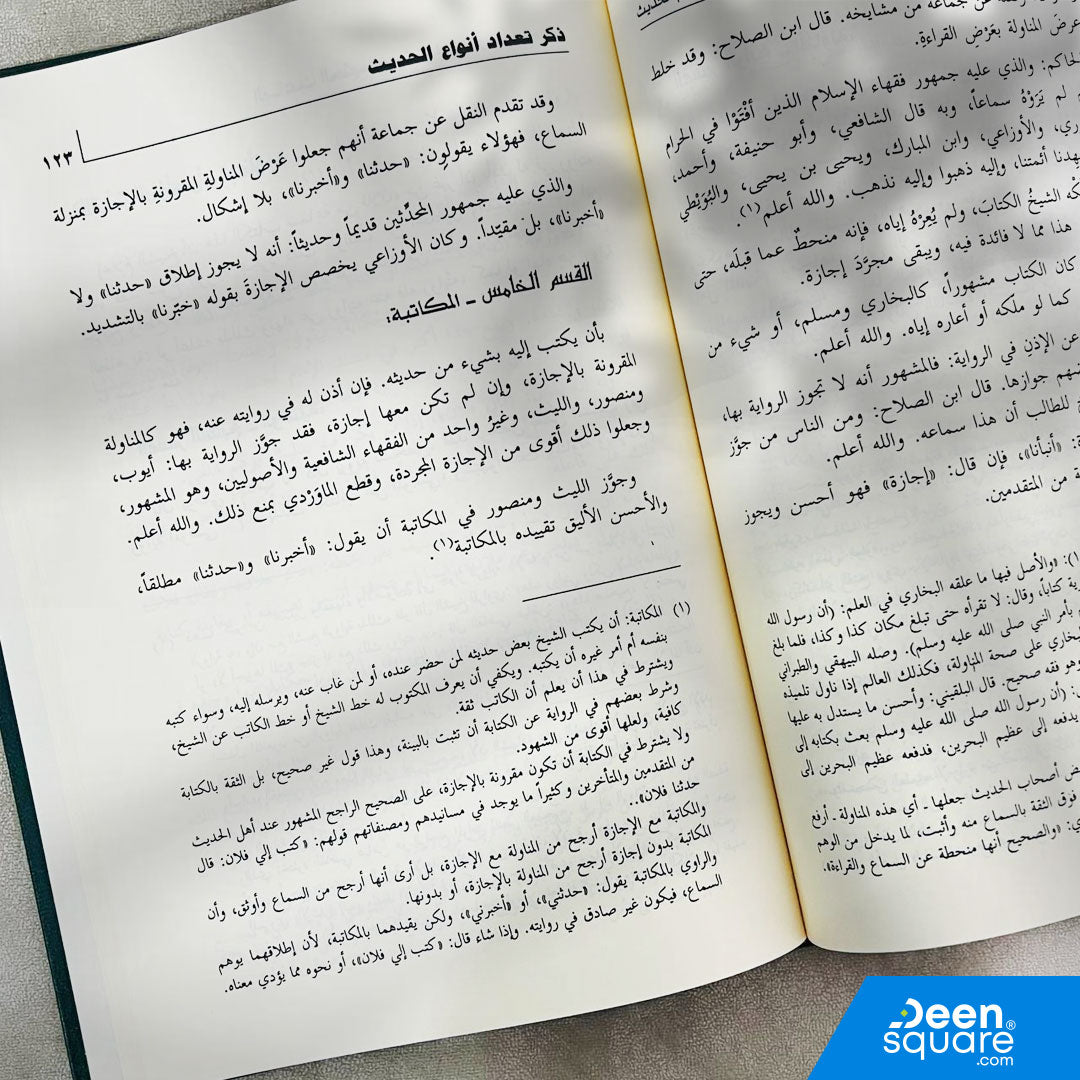 عن جماعة من مشايخه. قال ابن الصلاح: وقد خلط
عرض المناولة بعَرْضِ القراءةِ.
الحاكم: والذي عليه جمهور فقهاء الإسلام الذين أفْتَوْا في الحرام
لم يَرَوْهُ سماعاً، وبه قال الشافعي، وأبو حنيفة، وأحمد،
والأوزاعي، وابن المبارك، ويحيى بن يحيى، والبُوَيْطي
أئمتنا، وإليه ذهبوا وإليه نذهب. والله أعلم(١).
الشيخُ الكتابَ، ولم يُعِرْهُ إياه، فإنه منحطٌ عما قبلَه، حتى
هذا مما لا فائدة فيه، ويبقى مجرَّدَ إجازة.
كان الكتاب مشهوراً، كالبخاري ومسلم، أو شيء من
كما لو ملَكه أو أعاره إياه. والله أعلم.
عن الإذنِ في الرواية: فالمشهور أنه لا تجوز الرواية بها،
جوازها. قال ابن الصلاح: ومن الناس من جوَّز
للطالب أن هذا سماعه. والله أعلم.
«أنبأنا»، فإن قال: «إجازة» فهو أحسن ويجوز
من المتقدمين.
(١): «والأصل فيها ما علقه البخاري في العلم: (أن رسول الله
كتاباً، وقال: لا تقرأه حتى تبلغ مكان كذا وكذا، فلما بلغ
بأمر النبي صلى الله عليه وسلم). وصله البيهقي والطبراني
على صحة المناولة، فكذلك العالم إذا ناول تلميذه
وهو فقه صحيح. قال البلقيني: وأحسن ما يستدل به عليها
(أن رسول الله صلى الله عليه وسلم بعث بكتابه إلى
يدفعه إلى عظيم البحرين، فدفعه عظيم البحرين إلى
أصحاب الحديث جعلها ـ أي هذه المناولة ـ أرفع
فوق الثقة بالسماع منه وأثبت، لما يدخل من الوهم
«والصحيح أنها منحطة عن السماع والقراءة».
ذكر تعداد أنواع الحديث
١٢٣
وقد تقدم النقل عن جماعة أنهم جعلوا عَرْضَ المناولةِ المقرونةِ بالإجازة بمنزلة
السماع، فهؤلاء يقولون: «حدثنا» و«أخبرنا»، بلا إشكال.
والذي عليه جمهور المحدِّثين قديماً وحديثاً: أنه لا يجوز إطلاق «حدثنا» ولا
«أخبرنا»، بل مقيّداً. وكان الأوزاعي يخصص الإجازةَ بقوله «خبّرنا» بالتشديد.
القسم الخامس ـ المكاتبة:
بأن يكتب إليه بشيء من حديثه. فإن أذن له في روايته عنه، فهو كالمناولة
المقرونة بالإجازة، وإن لم تكن معها إجازة، فقد جوَّز الرواية بها: أيوب،
ومنصور، والليث، وغيرُ واحد من الفقهاء الشافعية والأصوليين، وهو المشهور،
وجعلوا ذلك أقوى من الإجازة المجردة، وقطع الماوَرْدي بمنع ذلك. والله أعلم.
وجوَّز الليث ومنصور في المكاتبة أن يقول: «أخبرنا» و«حدثنا» مطلقاً،
والأحسن الأليق تقييده بالمكاتبة(١).
(١) المكاتبة: أن يكتب الشيخ بعض حديثه لمن حضر عنده، أو لمن غاب عنه، ويرسله إليه، وسواء كتبه
بنفسه أم أمر غيره أن يكتبه. ويكفي أن يعرف المكتوب له خط الشيخ أو خط الكاتب عن الشيخ،
ويشترط في هذا أن يعلم أن الكاتب ثقة.
وشرط بعضهم في الرواية عن الكتابة أن تثبت بالبينة، وهذا قول غير صحيح، بل الثقة بالكتابة
كافية، ولعلها أقوى من الشهود.
ولا يشترط في الكتابة أن تكون مقرونة بالإجازة، على الصحيح الراجح المشهور عند أهل الحديث
من المتقدمين والمتأخرين وكثيراً ما يوجد في مسانيدهم ومصنفاتهم قولهم: «كتب إلي فلان: قال
حدثنا فلان»..
والمكاتبة مع الإجازة أرجح من المناولة مع الإجازة، بل أرى أنها أرجح من السماع وأوثق، وأن
المكاتبة بدون إجازة أرجح من المناولة بالإجازة، أو بدونها.
والراوي بالمكاتبة يقول: «حدثني»، أو «أخبرني»، ولكن يقيدهما بالمكاتبة، لأن إطلاقهما يوهم
السماع، فيكون غير صادق في روايته. وإذا شاء قال: «كتب إلي فلان»، أو نحوه مما يؤدي معناه.
Deen
square®
.com